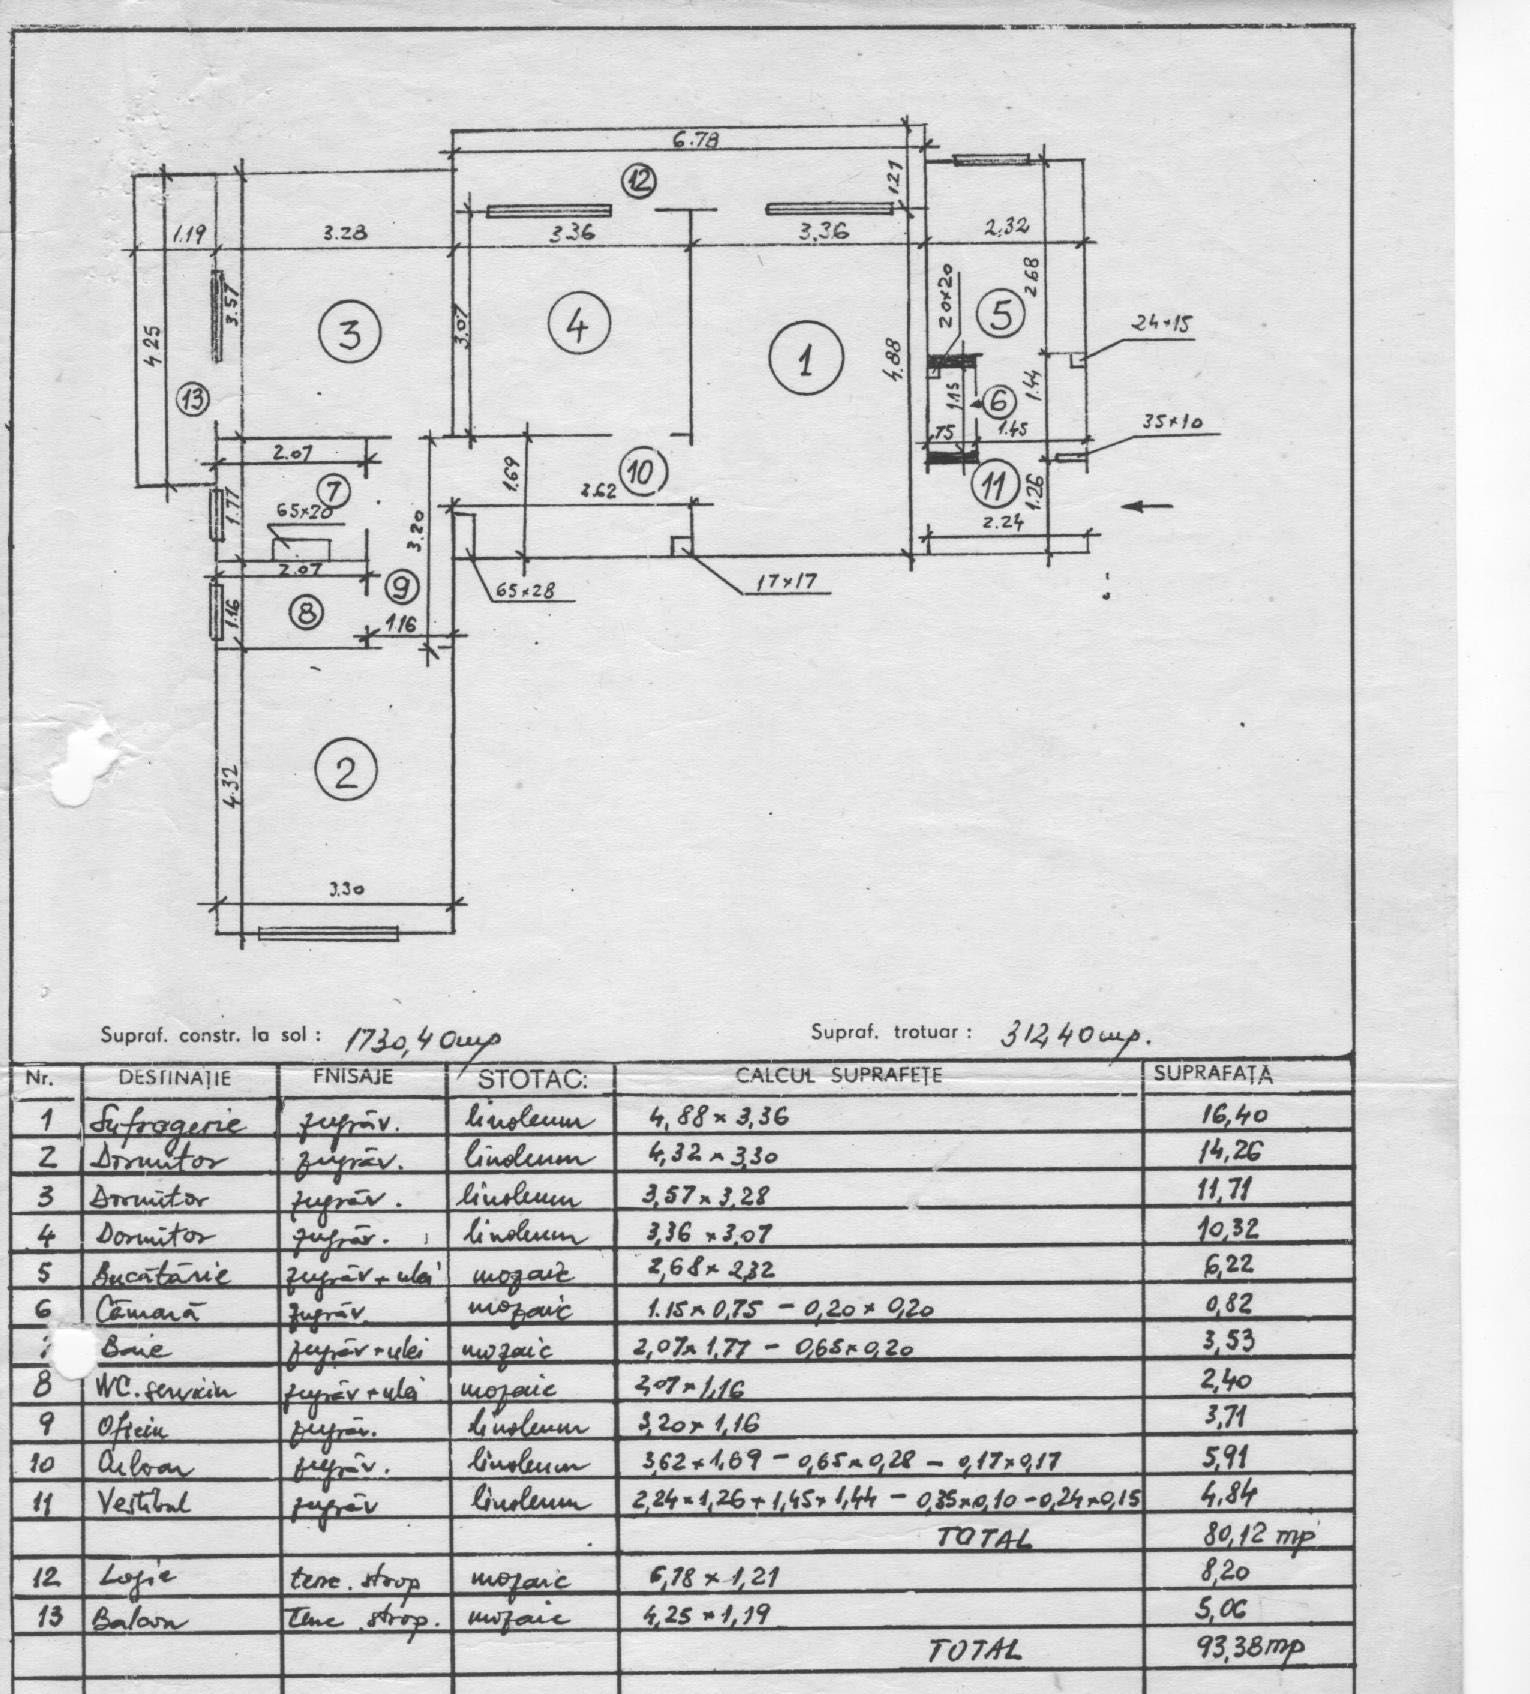 6.78
1.21
12
1.19
3.28
3.36
3,36
2,32
2.68
20×20
3.57
3
3.07
4
1
4.88
5
24×15
4.25
13
1.15
6
1.44
75
1.45
35×10
2.07
7
1.77
65×20
3.20
1.69
10
3.62
11
1.26
2.24
2.07
8
1.16
9
1.16
65×28
17×17
4.32
2
3.30
Supraf. constr. la sol : 1730,40mp Supraf. trotuar : 312,40mp.
Nr. DESTINAȚIE FNISAJE STOTAC: CALCUL SUPRAFEȚE SUPRAFAȚA
1 Sufragerie zugrăv. linoleum 4,88×3,36 16,40
2 Dormitor zugrăv. linoleum 4,32×3,30 14,26
3 Dormitor zugrăv. linoleum 3,57×3,28 11,71
4 Dormitor zugrăv. linoleum 3,36×3,07 10,32
5 Bucătărie zugrăv+ulei mozaic 2,68×2,32 6,22
6 Cămară zugrăv. mozaic 1.15×0,75 – 0,20×0,20 0,82
Baie zugrăv+ulei mozaic 2,07×1,77 – 0,65×0,20 3,53
8 WC. serviciu zugrăv+ulei mozaic 2,07×1,16 2,40
9 Oficiu zugrăv. linoleum 3,20×1,16 3,71
10 zugrăv. linoleum 3,62×1,69 – 0,65×0,28 – 0,17×0,17 5,91
11 Vestibul zugrăv linoleum 2,24×1,26+1,45×1,44 – 0,35×0,10 – 0,24×0,15 4,84
TOTAL 80,12 mp
12 Logie tenc. strop mozaic 6,78×1,21 8,20
13 Balcon tenc. strop. mozaic 4,25×1,19 5,06
TOTAL 93,38mp